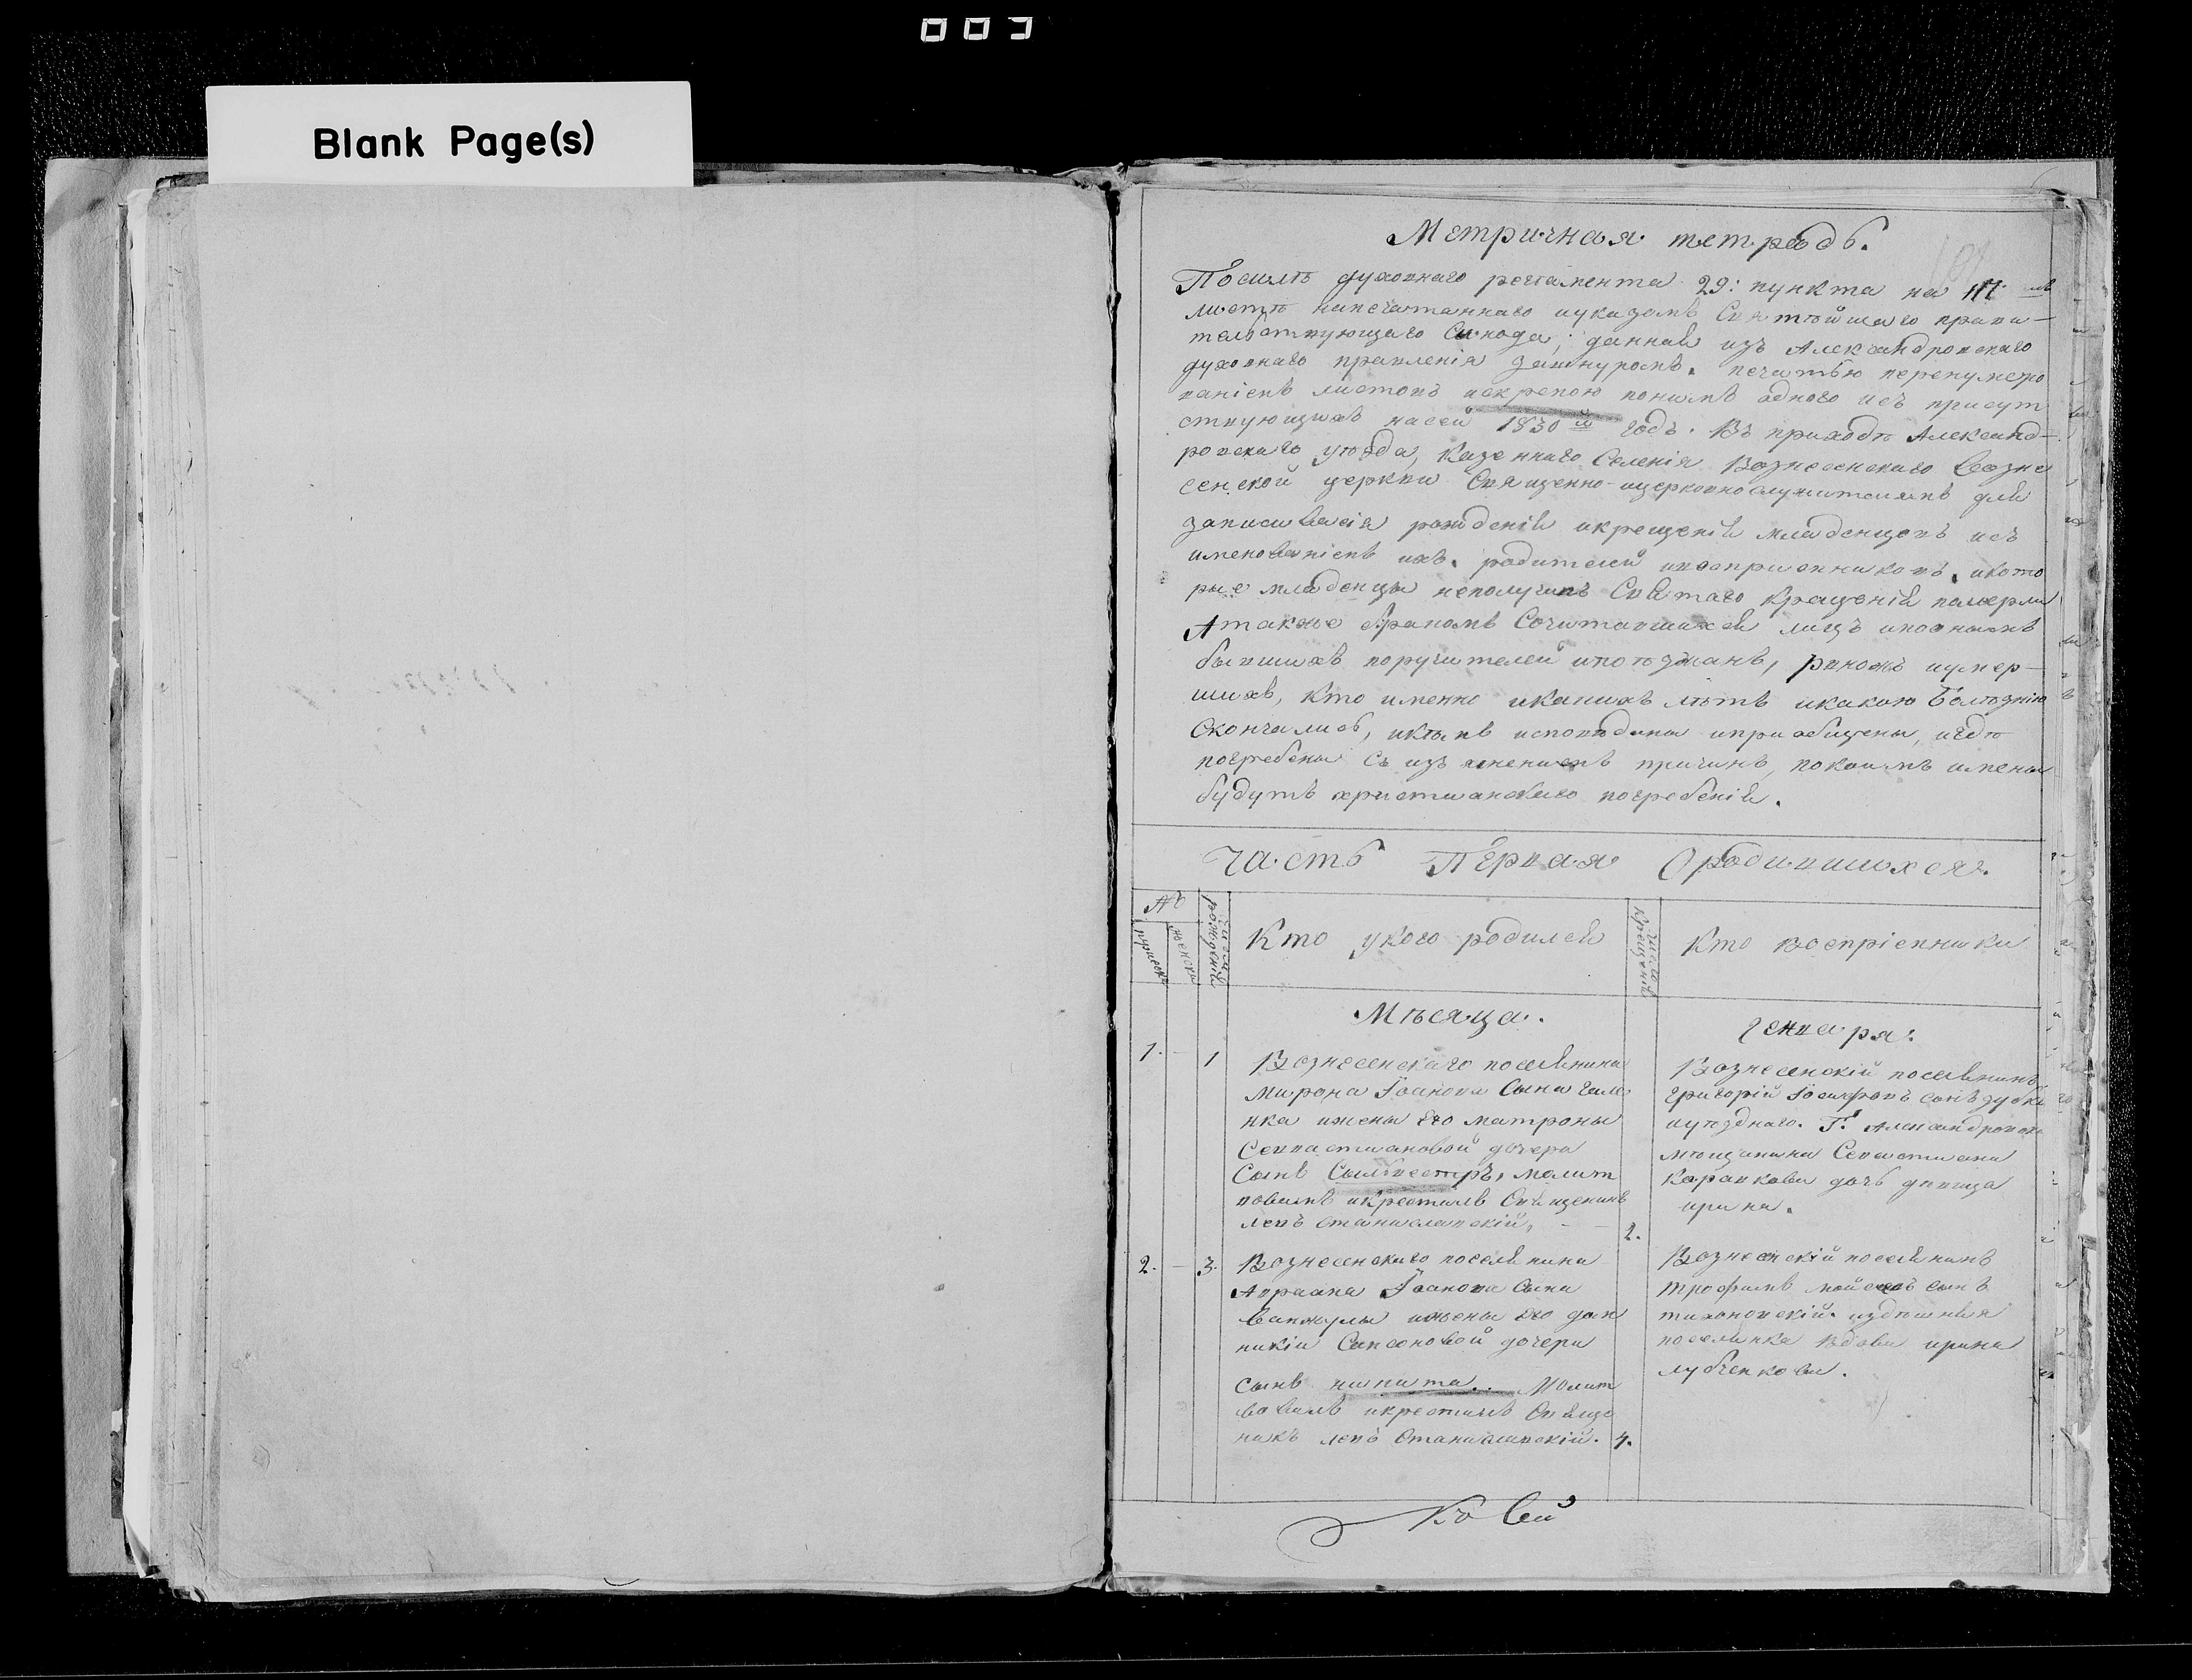 003
Blank Page(s)
Метричная тетрадь.
По силѣ духовнаго регламента 29: пункта на
листѣ напечатаннаго указомъ Святѣйшаго прави-
тельствующаго Синода; данная изъ Александровскаго
духовнаго правленія зашнуромъ. печатью перенумеро
ваніемъ листовъ искрепою понимъ одного изъ присут
ствующихъ насей 1830й годъ. Въ приходѣ Александ-
ровскаго уѣзда, казеннаго Селенія Вознесенскаго Возне
сенской церкви Священно-ицерковнослужителямъ для
записиванія рожденія икрещенія младенцовъ изъ
именованіемъ ихъ. родителей ивоспріемниковъ. икото
рые младенцы неполучивъ Святаго крещенія померли
Атакже бракомъ Сочитавшихся лицъ ипоонымъ
бывшихъ поручителей ипоѣзжанъ, равножъ иумер-
шихъ, кто именно икакихъ лѣтъ икакою болѣзнію
Скончались, икѣмъ исповѣданы иприобщены, игдѣ
погребены Съ изъ причинъ, покоимъ
будутъ христианскаго погребенія.
Часть Первая Ородившихся.
№
мужеска
женска
число рожденія
Кто укого родился
число крещенія
Кто воспріемники
Мѣсяца.
Генваря:
1. - 1
Вознесенскаго поселянина
Мирона Іоанова Сына Гале
нка ижены его матроны
Севастиановой дочери
Сынъ Сильвестръ, молит
вовалъ икрестилъ Священикъ
левъ Станиславскій, - - 2.
Вознесенскій поселянинъ
григорій сынъ зубко
иуѣзднаго. Г. Александровска
мѣщанина Севастиана
дочь дѣвица
ирина.
2. - 3.
Вознесенскаго поселянина
Авраама Іоанова Сына
ижены его дом
никіи Сапсоновой дочери
сынъ никита.. Молит
вовалъ икрестилъ Свяще
никъ левъ Станиславскій. 4.
Вознесенскій поселянинъ
трофимъ мойсеевъ сынъ
тихоновскій. издѣшняя
поселянка вдова ирина
лубченкова.